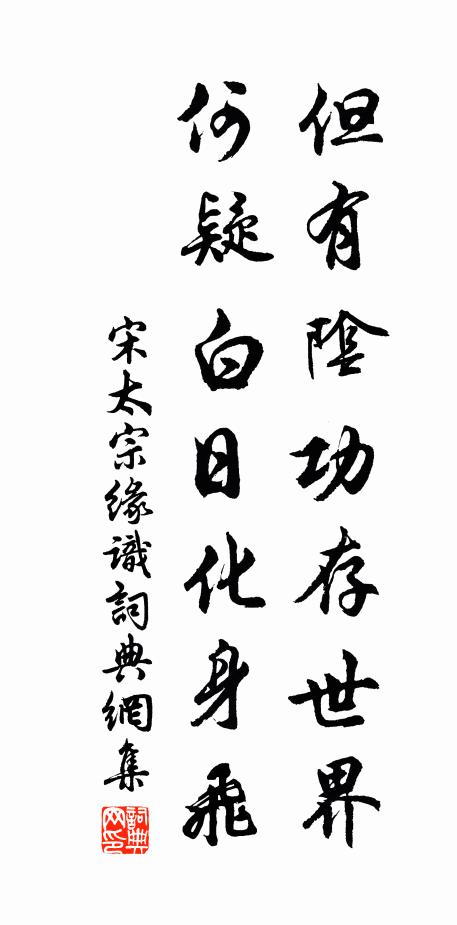 但有陰功存世界
何疑白日化身飛
宋太宗緣識詞典網集
詞典网印